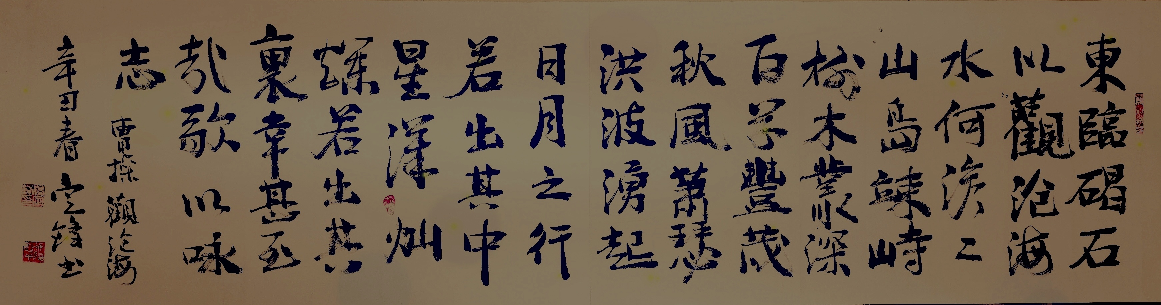 東臨碣石
以觀沧海
水何淡二
山島竦峙
樹木叢深
百草豐茂
秋風蕭瑟
洪波湧起
日月之行
若出其中
星漢灿
爛若出其
裏幸甚至
哉歌以咏
志
曹操觀沧海
辛丑春書